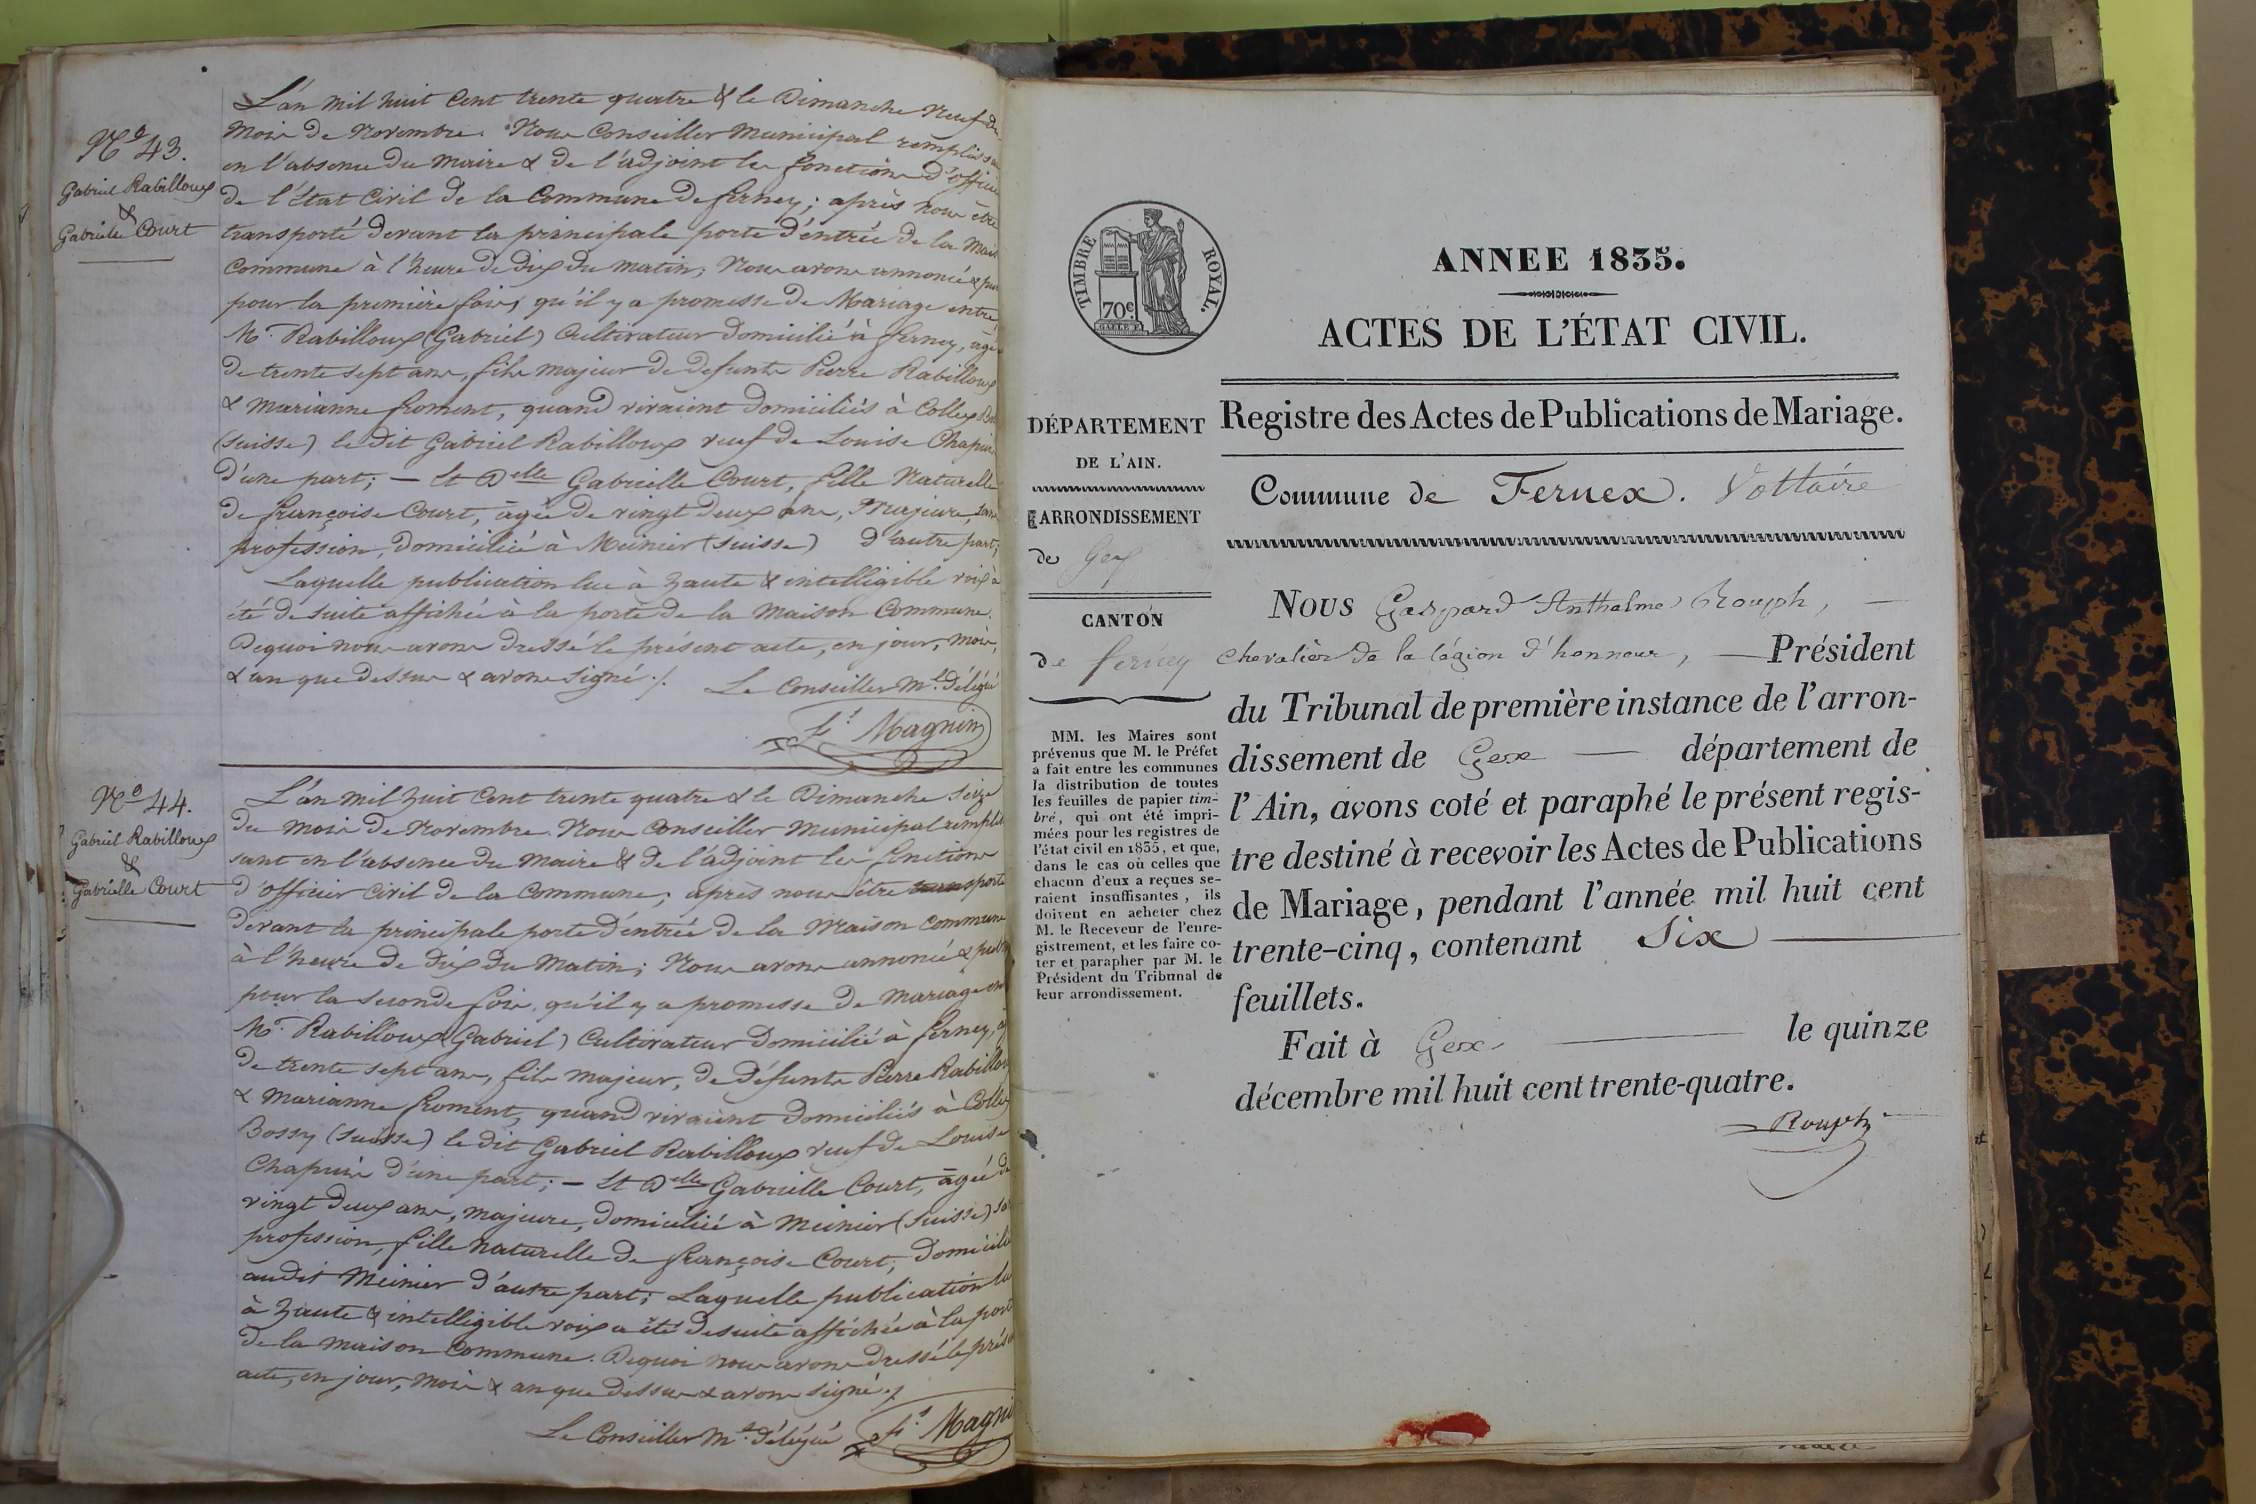 N° 43.
Gabriel Rabilloux
&
Gabrielle Court
L'an mil huit Cent trente quatre & le Dimanche neuf du
mois de Novembre. Nous Conseiller Municipal remplissant
en l'absence du maire & de l'adjoint les fonctions d'officier
de l'État Civil de la Commune de ferney; après nous être
transporté devant la principale porte d'entrée de la Mais
Commune à l'heure de dix du matin; Nous avons annoncé & pub
pour la première fois, qu'il y a promesse de Mariage entre
Mr. Rabilloux (Gabriel) Cultivateur domicilié à ferney, agé
de trente sept ans, fils majeur de defunts Pierre Rabilloux
& marianne froment, quand vivaient domiciliés à Collex Bos
(suisse) le dit Gabriel Rabilloux veuf de Louise Chapuis
d'une part; — Et Delle Gabrielle Court, fille Naturelle
de françoise Court, âgée de vingt deux ans, Majeure, sans
profession, domiciliée à Meinier (suisse) d'autre part;
Laquelle publication lue à haute & intelligible voix à
été de suite affichée à la porte de la maison Commune.
Dequoi nous avons dressé le présent acte, en jour, mois,
& an que dessus & avons signé ./. Le Conseiller Ml. délégué
fs. Magnin
N° 44.
Gabriel Rabilloux
&
Gabrielle Court
L'an mil huit Cent trente quatre & le Dimanche seize
du mois de novembre. Nous Conseiller municipal remplis
sant en l'absence du maire & de l'adjoint les fonctions
d'officier civil de la Commune; après nous être transporté
devant la principale porte d'entrée de la Maison Commune
à l'heure de dix du Matin; Nous avons annoncé & publ
pour la seconde fois, qu'il y a promesse de mariage en
Mr. Rabilloux (Gabriel) Cultivateur domicilié à ferney, ag
de trente sept ans, fils majeur, de défunts Pierre Rabillou
& marianne froment, quand vivaient domiciliés à Collex
Bossy (Suisse) le dit Gabriel Rabilloux veuf de Louise
Chapuis d'une part; — Et Delle Gabrielle Court, âgée de
vingt deux ans, majeure, domiciliée à Meinier (Suisse) sa
profession, fille naturelle de françoise Court, domicilié
audit Meinier d'autre part; Laquelle publication lu
à haute & intelligible voix a été de suite affichée à la port
de la maison Commune. Dequoi nous avons dressé le prése
acte, en jour, mois & an que dessus & avons signé ./.
Le Conseiller Ml. délégué fs. Magni
TIMBRE ROYAL.
70c.
ANNEE 1835.
ACTES DE L'ÉTAT CIVIL.
DÉPARTEMENT
DE L'AIN.
ARRONDISSEMENT
de Gex
CANTON
de ferney
MM. les Maires sont
prévenus que M. le Préfet
a fait entre les communes
la distribution de toutes
les feuilles de papier tim-
bré, qui ont été impri-
mées pour les registres de
l'état civil en 1835, et que,
dans le cas où celles que
chacun d'eux a reçues se-
raient insuffisantes, ils
doivent en acheter chez
M. le Receveur de l'enre-
gistrement, et les faire co-
ter et parapher par M. le
Président du Tribunal de
leur arrondissement.
Registre des Actes de Publications de Mariage.
Commune de Fernex. Voltaire
Nous Gaspard Anthelme Rouph, —
chevalier de la légion d'honneur, — Président
du Tribunal de première instance de l'arron-
dissement de Gex — département de
l'Ain, avons coté et paraphé le présent regis-
tre destiné à recevoir les Actes de Publications
de Mariage, pendant l'année mil huit cent
trente-cinq, contenant Six —
feuillets.
Fait à Gex — le quinze
décembre mil huit cent trente-quatre.
Rouph